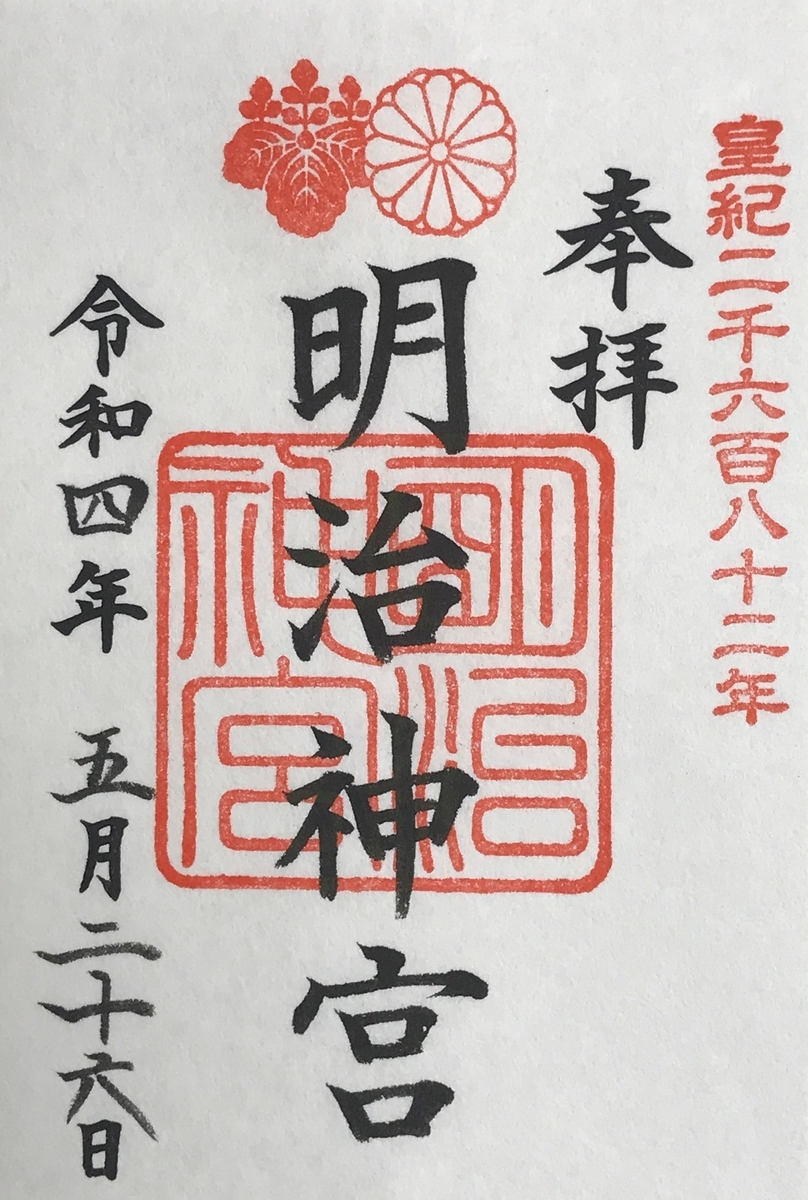 皇紀二千六百八十二年
奉拝
明治神宮
明治神宮
令和四年 五月二十六日